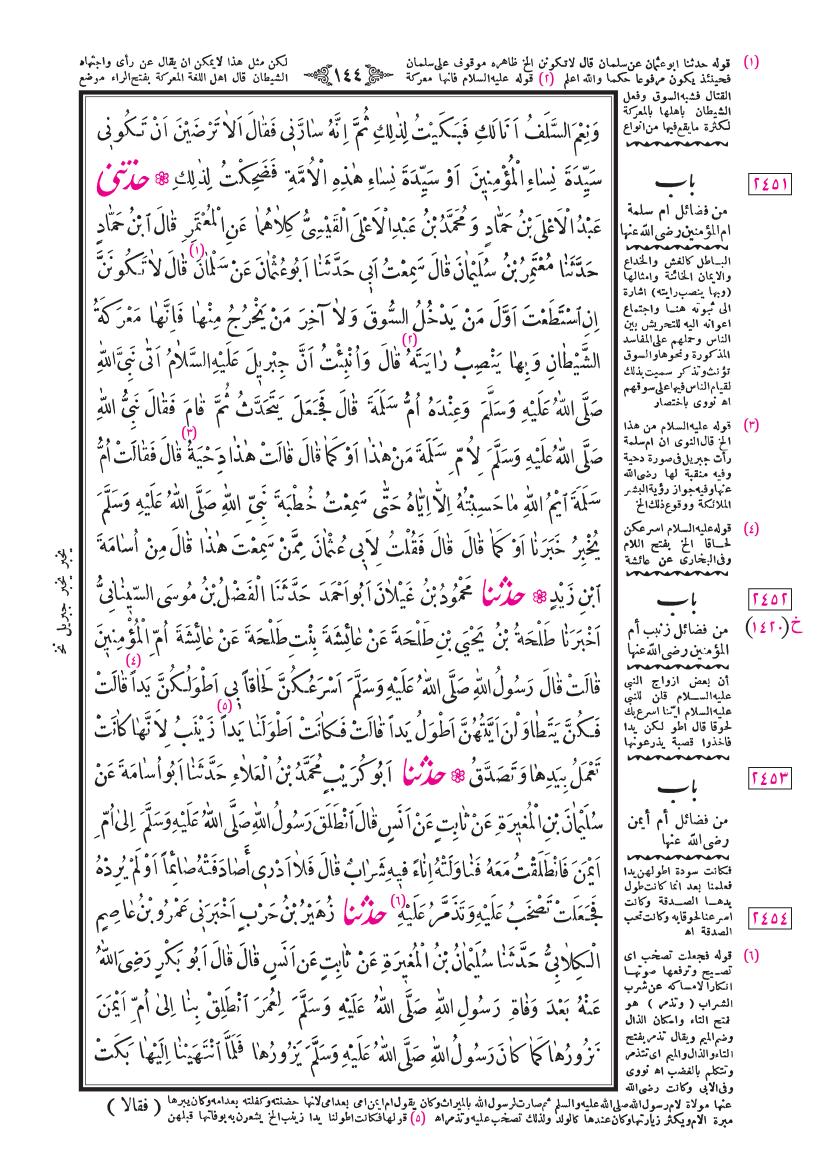 (١) قوله حدثنا ابوعثمان عن سلمان قال لاتكونن الخ ظاهره موقوف على سلمان
لكن مثل هذا لايمكن ان يقال عن رأى واجتهاد
١٤٤
فحينئذ يكون مرفوعا حكما والله اعلم (٢) قوله عليه السلام فانها معركة
الشيطان قال اهل اللغة المعركة بفتح الراء موضع
القتال فشبه السوق وفعل
الشيطان باهلها بالمعركة
لكثرة مايقع فيها من انواع
وَنِعْمَ السَّلَفُ اَنَا لَكِ فَبَكَيْتُ لِذٰلِكِ ثُمَّ اِنَّهُ سَارَّنِى فَقَالَ اَلاَ تَرْضَيْنَ اَنْ تَكُونِى
سَيِّدَةَ نِسَاءِ الْمُؤْمِنِينَ اَوْ سَيِّدَةَ نِسَاءِ هٰذِهِ الْاُمَّةِ فَضَحِكْتُ لِذٰلِكِ ۞ حَدَّثَنِى
عَبْدُ الْاَعْلَى بْنُ حَمَّادٍ وَمُحَمَّدُ بْنُ عَبْدِ الْاَعْلَى الْقَيْسِىُّ كِلاَهُمَا عَنِ الْمُعْتَمِرِ قَالَ ابْنُ حَمَّادٍ
حَدَّثَنَا مُعْتَمِرُ بْنُ سُلَيْمَانَ قَالَ سَمِعْتُ اَبِى حَدَّثَنَا اَبُو عُثْمَانَ عَنْ سَلْمَانَ (١) قَالَ لاَ تَكُونَنَّ
اِنِ اسْتَطَعْتَ اَوَّلَ مَنْ يَدْخُلُ السُّوقَ وَلاَ آخِرَ مَنْ يَخْرُجُ مِنْهَا فَاِنَّهَا مَعْرَكَةُ
الشَّيْطَانِ وَبِهَا يَنْصِبُ رَايَتَهُ (٢) قَالَ وَاُنْبِئْتُ اَنَّ جِبْرِيلَ عَلَيْهِ السَّلاَمُ اَتٰى نَبِىَّ اللهِ
صَلَّى اللهُ عَلَيْهِ وَسَلَّمَ وَعِنْدَهُ اُمُّ سَلَمَةَ قَالَ فَجَعَلَ يَتَحَدَّثُ ثُمَّ قَامَ فَقَالَ نَبِىُّ اللهِ
صَلَّى اللهُ عَلَيْهِ وَسَلَّمَ لِاُمِّ سَلَمَةَ مَنْ هٰذَا اَوْ كَمَا قَالَ قَالَتْ هٰذَا دِحْيَةُ (٣) قَالَ فَقَالَتْ اُمُّ
سَلَمَةَ اَيْمُ اللهِ مَا حَسِبْتُهُ اِلاَّ اِيَّاهُ حَتّٰى سَمِعْتُ خُطْبَةَ نَبِىِّ اللهِ صَلَّى اللهُ عَلَيْهِ وَسَلَّمَ
يُخْبِرُ خَبَرَنَا اَوْ كَمَا قَالَ قَالَ فَقُلْتُ لِاَبِى عُثْمَانَ مِمَّنْ سَمِعْتَ هٰذَا قَالَ مِنْ اُسَامَةَ
ابْنِ زَيْدٍ ۞ حَدَّثَنَا مَحْمُودُ بْنُ غَيْلاَنَ اَبُو اَحْمَدَ حَدَّثَنَا الْفَضْلُ بْنُ مُوسَى السِّينَانِىُّ
اَخْبَرَنَا طَلْحَةُ بْنُ يَحْيَى بْنِ طَلْحَةَ عَنْ عَائِشَةَ بِنْتِ طَلْحَةَ عَنْ عَائِشَةَ اُمِّ الْمُؤْمِنِينَ
قَالَتْ قَالَ رَسُولُ اللهِ صَلَّى اللهُ عَلَيْهِ وَسَلَّمَ اَسْرَعُكُنَّ لَحَاقاً (٤) بِى اَطْوَلُكُنَّ يَداً قَالَتْ
فَكُنَّ يَتَطَاوَلْنَ اَيَّتُهُنَّ اَطْوَلُ يَداً قَالَتْ فَكَانَتْ اَطْوَلَنَا يَداً (٥) زَيْنَبُ لِاَنَّهَا كَانَتْ
تَعْمَلُ بِيَدِهَا وَتَصَدَّقُ ۞ حَدَّثَنَا اَبُو كُرَيْبٍ مُحَمَّدُ بْنُ الْعَلاَءِ حَدَّثَنَا اَبُو اُسَامَةَ عَنْ
سُلَيْمَانَ بْنِ الْمُغِيرَةِ عَنْ ثَابِتٍ عَنْ اَنَسٍ قَالَ انْطَلَقَ رَسُولُ اللهِ صَلَّى اللهُ عَلَيْهِ وَسَلَّمَ اِلٰى اُمِّ
اَيْمَنَ فَانْطَلَقْتُ مَعَهُ فَنَاوَلَتْهُ اِنَاءً فِيهِ شَرَابٌ قَالَ فَلاَ اَدْرِى أَصَادَفَتْهُ صَائِماً اَوْ لَمْ يُرِدْهُ
فَجَعَلَتْ تَصْخَبُ عَلَيْهِ وَتَذَمَّرُ عَلَيْهِ (٦) حَدَّثَنَا زُهَيْرُ بْنُ حَرْبٍ اَخْبَرَنِى عَمْرُو بْنُ عَاصِمٍ
الْكِلاَبِىُّ حَدَّثَنَا سُلَيْمَانُ بْنُ الْمُغِيرَةِ عَنْ ثَابِتٍ عَنْ اَنَسٍ قَالَ قَالَ اَبُو بَكْرٍ رَضِىَ اللهُ
عَنْهُ بَعْدَ وَفَاةِ رَسُولِ اللهِ صَلَّى اللهُ عَلَيْهِ وَسَلَّمَ لِعُمَرَ انْطَلِقْ بِنَا اِلٰى اُمِّ اَيْمَنَ
نَزُورُهَا كَمَا كَانَ رَسُولُ اللهِ صَلَّى اللهُ عَلَيْهِ وَسَلَّمَ يَزُورُهَا فَلَمَّا انْتَهَيْنَا اِلَيْهَا بَكَتْ
٢٤٥١
باب
من فضائل ام سلمة
ام المؤمنين رضى الله عنها
الباطل كالغش والخداع
والايمان الخائنة وامثالها
(وبها ينصب رايته) اشارة
الى ثبوته هنا واجتماع
اعوانه اليه للتحريش بين
الناس وحملهم على المفاسد
المذكورة ونحوها والسوق
تؤنث وتذكر سميت بذلك
لقيام الناس فيها على سوقهم
اه نووى باختصار
(٣) قوله عليه السلام من هذا
الخ قال النوى ان ام سلمة
رأت جبريل فى صورة دحية
وفيه منقبة لها رضى الله
عنها وفيه جواز رؤية البشر
الملائكة ووقوع ذلك الخ
(٤) قوله عليه السلام اسرعكن
لحاقا الخ بفتح اللام
وفى البخارى عن عائشة
٢٤٥٢
خ (١٤٢٠)
باب
من فضائل زينب أم
المؤمنين رضى الله عنها
أن بعض ازواج النبى
عليه السلام قلن للنبى
عليه السلام أيّنا اسرع بك
لحوقا قال اطو لكن يدا
فاخذوا قصبة يذرعونها
٢٤٥٣
باب
من فضائل أم أيمن
رضى الله عنها
فكانت سودة اطولهن يدا
فعلمنا بعد انما كانت طول
يدها الصدقة وكانت
اسرعنا لحوقا به وكانت تحب
الصدقة اه
٢٤٥٤
(٦) قوله فجعلت تصخب اى
تصيح وترفعها صوتها
انكارا لامساكه عن شرب
الشراب (وتذمر) هو
بفتح التاء واسكان الذال
وضم الميم ويقال تذمر بفتح
التاء والذال والميم اى تتذمر
وتتكلم بالغضب اه نووى
وفى الابى وكانت رضى الله
عنها مولاة لام رسول الله صلى الله عليه والسلم ثم صارت لرسول الله بالميراث وكان يقول ام ايمن امى بعد امى لانها حضنته وكفلته بعد امه وكان يبرها
مبرة الام ويكثر زيارتها وكان عندها كالولد ولذلك تصخب عليه وتذمر اه (٥) قولها فكانت اطولنا يدا زينب الخ يشعرن به بوفاتها قبلهن
( فقالا )
يخبر بخبر جبريل نخ